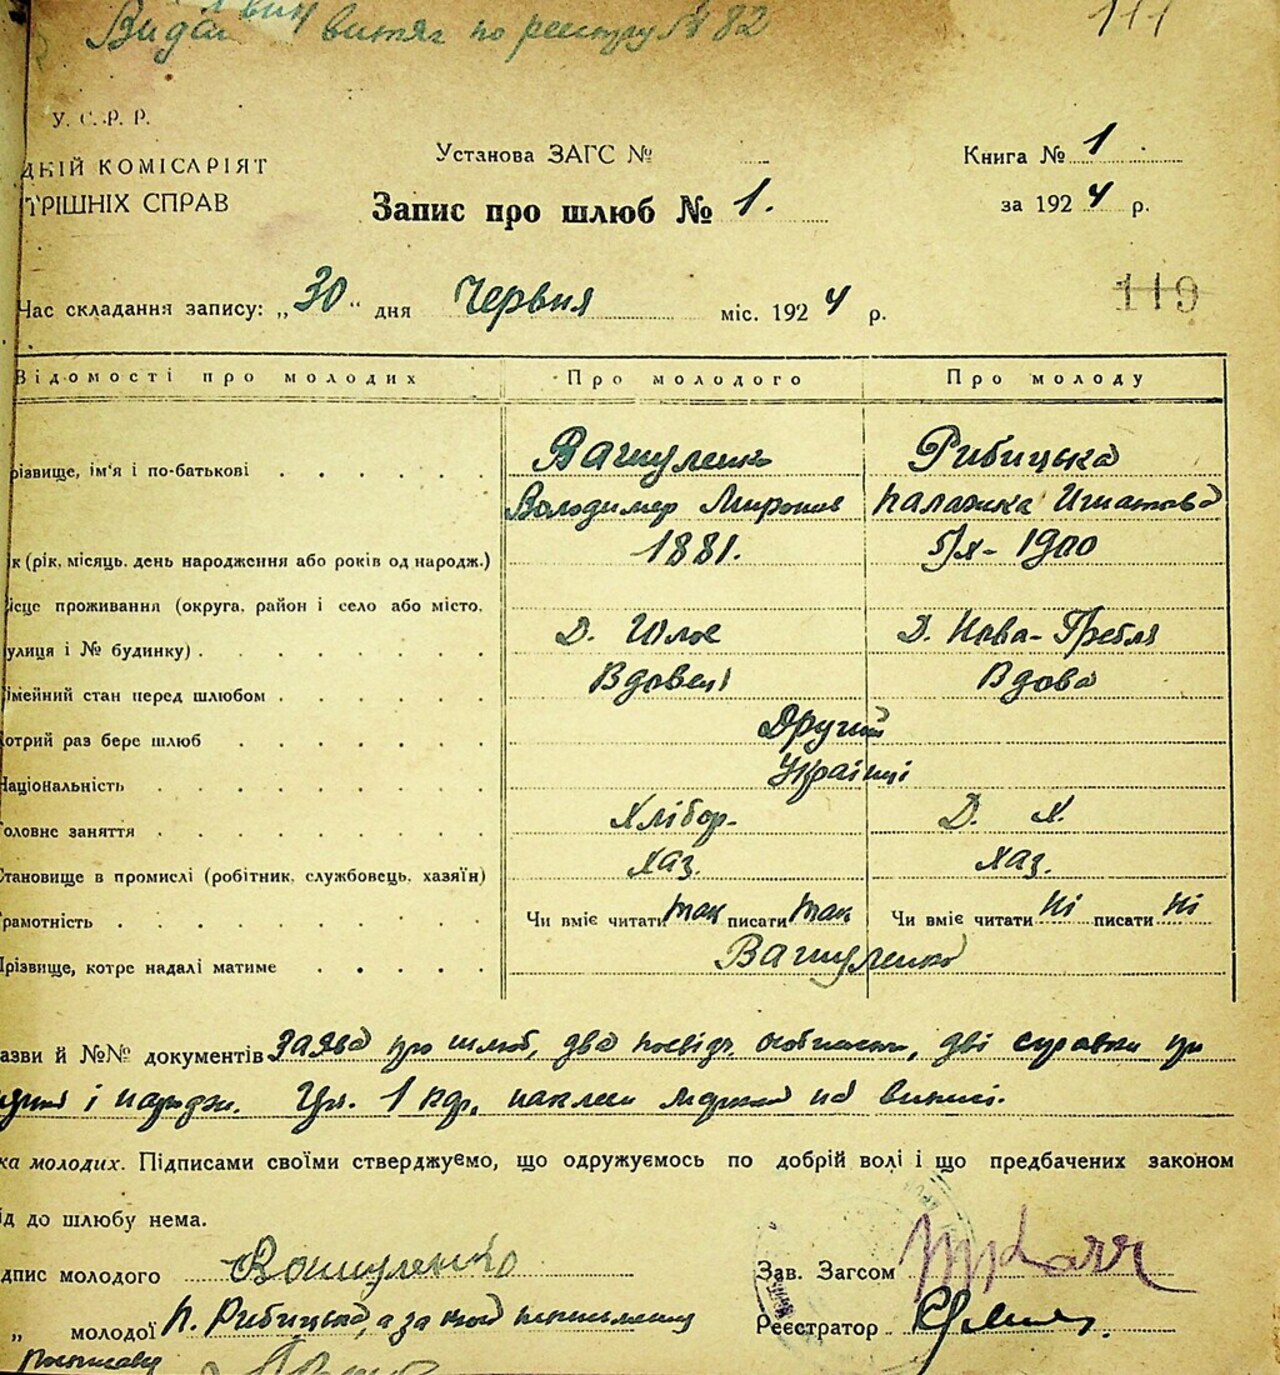 Видан витяг по реєстру № 82
111
У. С. Р. Р.
ДНІЙ КОМІСАРІЯТ
ТРІШНІХ СПРАВ
Установа ЗАГС №
Книга № 1
Запис про шлюб № 1.
за 1924 р.
Час складання запису: „30“ дня Червня міс. 1924 р.
119
Відомості про молодих
Про молодого
Про молоду
різвище, ім'я і по-батькові
Вашуленко
Рибицька
Володимер Миронів
Палажка Игнатова
к (рік, місяць, день народження або років од народж.)
1881.
5/X- 1900
ісце проживання (округа, район і село або місто,
улиця і № будинку)
Д.
Д. Нова-Гребля
імейний стан перед шлюбом
Вдовець
Вдова
отрий раз бере шлюб
Другий
Національність
Українці
оловне заняття
Хлібор-
Д. Х.
тановище в промислі (робітник, службовець, хазяїн)
Хаз.
Хаз.
рамотність
Чи вміє читати так писати так
Чи вміє читати ні писати ні
Прізвище, котре надалі матиме
Вашуленко
азви й №№ документів Заява про шлюб, два посвідч. особисті, дві справки
і народж. 1 кр. на виписі.
ка молодих. Підписами своїми стверджуємо, що одружуємось по добрій волі і що предбачених законом
ід до шлюбу нема.
дпис молодого Вашуленко
Зав. Загсом
„ молодої П. Рибицька, а за неї неписьменну
Реєстратор